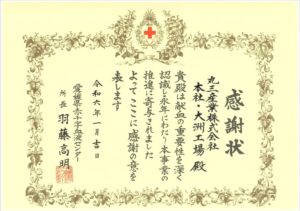 感謝状
丸三産業株式会社
本社・大洲工場 殿
貴殿は献血の重要性を深く
認識し永年にわたり本事業の
推進に寄与されました
よってここに感謝の意を
表します
令和六年一月吉日
愛媛県赤十字血液センター
所長 羽藤高明